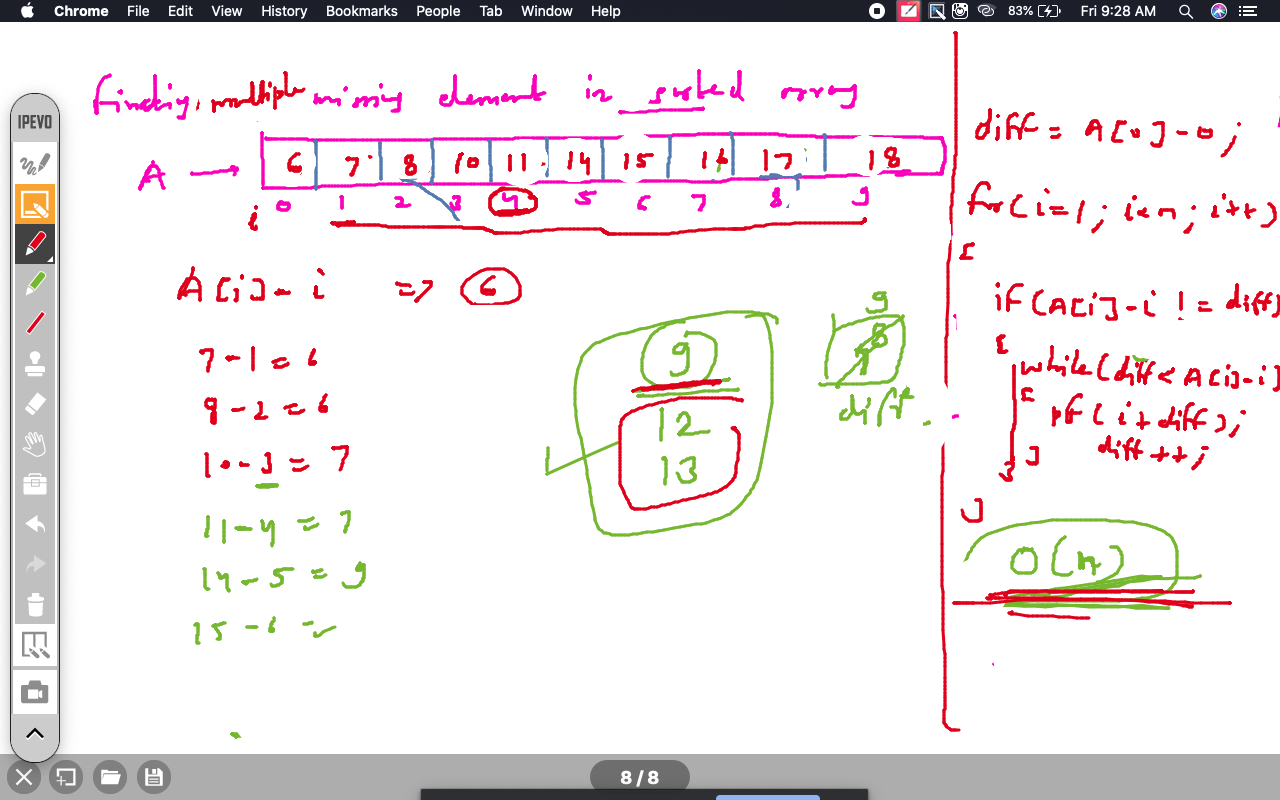 Chrome File Edit View History Bookmarks People Tab Window Help 83% Fri 9:28 AM
IPEVO
finding multiple missing element in sorted array
A → 6 7 8 10 11 14 15 16 17 18
i 0 1 2 3 4 5 6 7 8 9
A[i]-i => 6
7-1=6
8-2=6
10-3=7
11-4=7
14-5=9
15-6=
9
12
13
9
7 8
diff
diff = A[0]-0;
for(i=1; i<n; i++)
[
if(A[i]-i != diff)
[
while(diff<A[i]-i)
[
pf(i+diff);
diff++;
]
]
]
O(n)
8/8